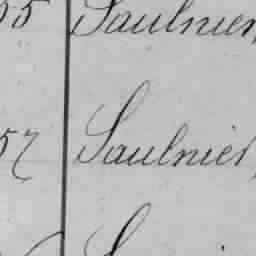 55 Saulnier,
57 Saulnier,